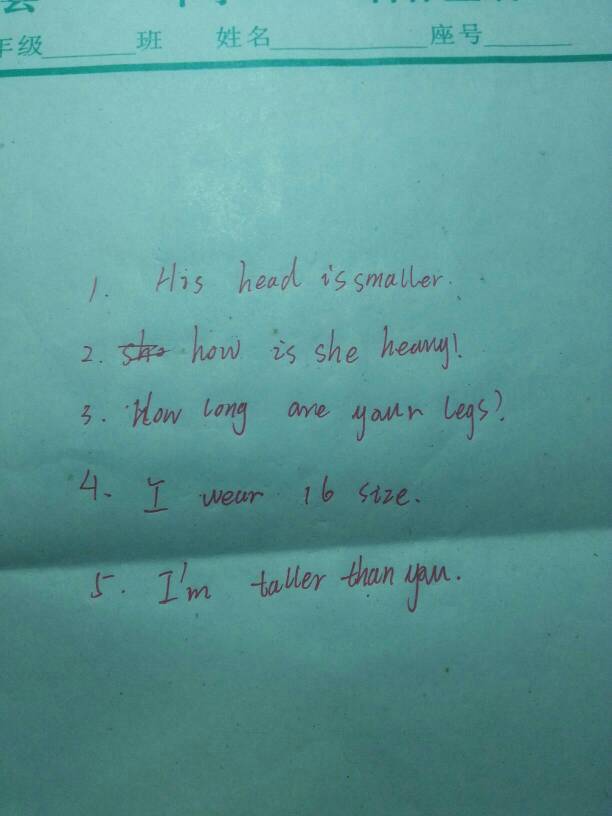 年级 班 姓名 座号
1. His head is smaller.
2. how is she heavy!
3. How long are your legs?
4. I wear 16 size.
5. I'm taller than you.